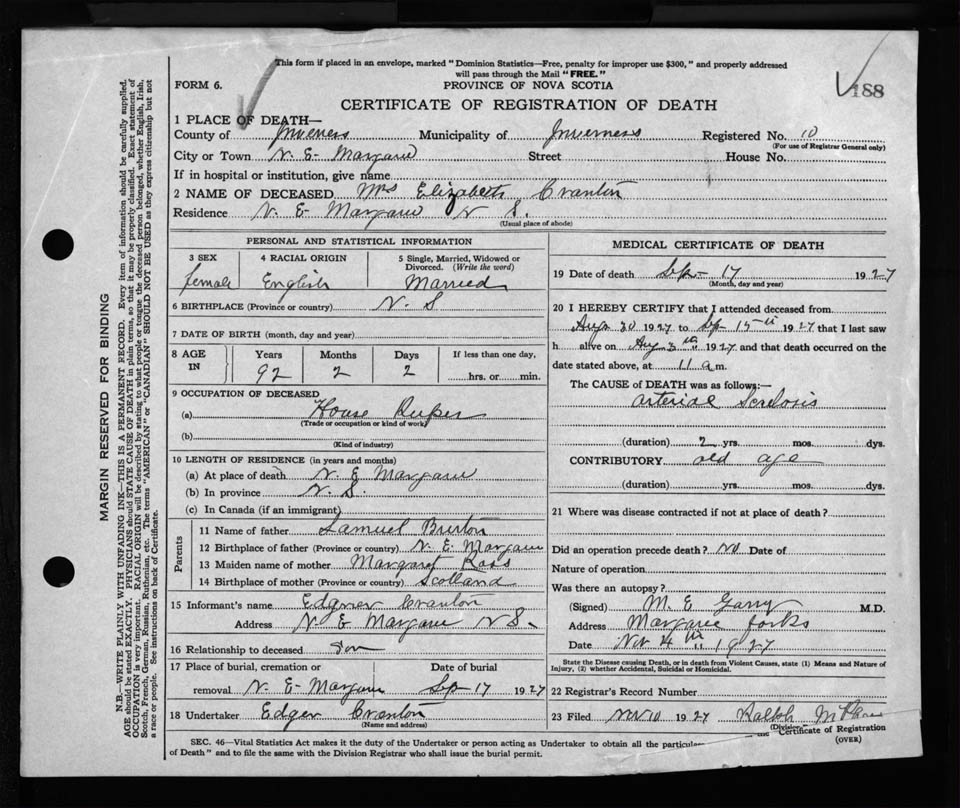 This form if placed in an envelope, marked "Dominion Statistics—Free, penalty for improper use $300," and properly addressed
will pass through the Mail "FREE."
FORM 6.
PROVINCE OF NOVA SCOTIA
188
CERTIFICATE OF REGISTRATION OF DEATH
1 PLACE OF DEATH—
County of Inverness Municipality of Inverness Registered No. 10
(For use of Registrar General only)
City or Town N. E- Margaree Street House No.
If in hospital or institution, give name
2 NAME OF DECEASED Mrs Elizabeth Cranton
Residence N. E Margaree N S.
(Usual place of abode)
PERSONAL AND STATISTICAL INFORMATION
3 SEX 4 RACIAL ORIGIN 5 Single, Married, Widowed or Divorced. (Write the word)
female English Married
6 BIRTHPLACE (Province or country) N. S
7 DATE OF BIRTH (month, day and year)
8 AGE IN Years Months Days If less than one day,
92 2 2 hrs. or min.
9 OCCUPATION OF DECEASED
(a) House Keeper
(Trade or occupation or kind of work)
(b)
(Kind of industry)
10 LENGTH OF RESIDENCE (in years and months)
(a) At place of death N. E Margaree
(b) In province N. S.
(c) In Canada (if an immigrant)
Parents
11 Name of father Samuel
12 Birthplace of father (Province or country) N. E Margaree
13 Maiden name of mother Margaret Ross
14 Birthplace of mother (Province or country) Scotland
15 Informant's name Cranton
Address N. E Margaree N S.
16 Relationship to deceased Son
17 Place of burial, cremation or Date of burial
removal N. E- Margaree Sep 17 1927
18 Undertaker Edger Cranton
(Name and address)
MEDICAL CERTIFICATE OF DEATH
19 Date of death Sep- 17 1927
(Month, day and year)
20 I HEREBY CERTIFY that I attended deceased from
Aug 30 1927 to Sep 15th 1927 that I last saw
h alive on Aug 1927 and that death occurred on the
date stated above, at 11 a m.
The CAUSE of DEATH was as follows:—
Arterial Sclelosis
(duration) 2 yrs. mos. dys.
CONTRIBUTORY old age
(duration) yrs. mos. dys.
21 Where was disease contracted if not at place of death?
Did an operation precede death? no Date of
Nature of operation
Was there an autopsy?
(Signed) M. E M.D.
Address Margaree Forks
Date 4th 1927
State the Disease causing Death, or in death from Violent Causes, state (1) Means and Nature of
Injury, (2) whether Accidental, Suicidal or Homicidal.
22 Registrar's Record Number
23 Filed Nov 10 1927 Ralph
(Division
the Certificate of Registration
(OVER)
SEC. 46—Vital Statistics Act makes it the duty of the Undertaker or person acting as Undertaker to obtain all the
of Death" and to file the same with the Division Registrar who shall issue the burial permit.
MARGIN RESERVED FOR BINDING
N.B.—WRITE PLAINLY WITH UNFADING INK—THIS IS A PERMANENT RECORD. Every item of information should be carefully supplied.
AGE should be stated EXACTLY. PHYSICIANS should STATE CAUSE OF DEATH in plain terms, so that it may be properly classified. Exact statement of
OCCUPATION is very important. RACIAL ORIGIN will be described by stating to what people or tongue the deceased person belonged, whether English, Irish,
Scotch, French, German, Russian, Ruthenian, etc. The terms "AMERICAN" or "CANADIAN" SHOULD NOT BE USED as they express citizenship but not
a race or people. See instructions on back of Certificate.